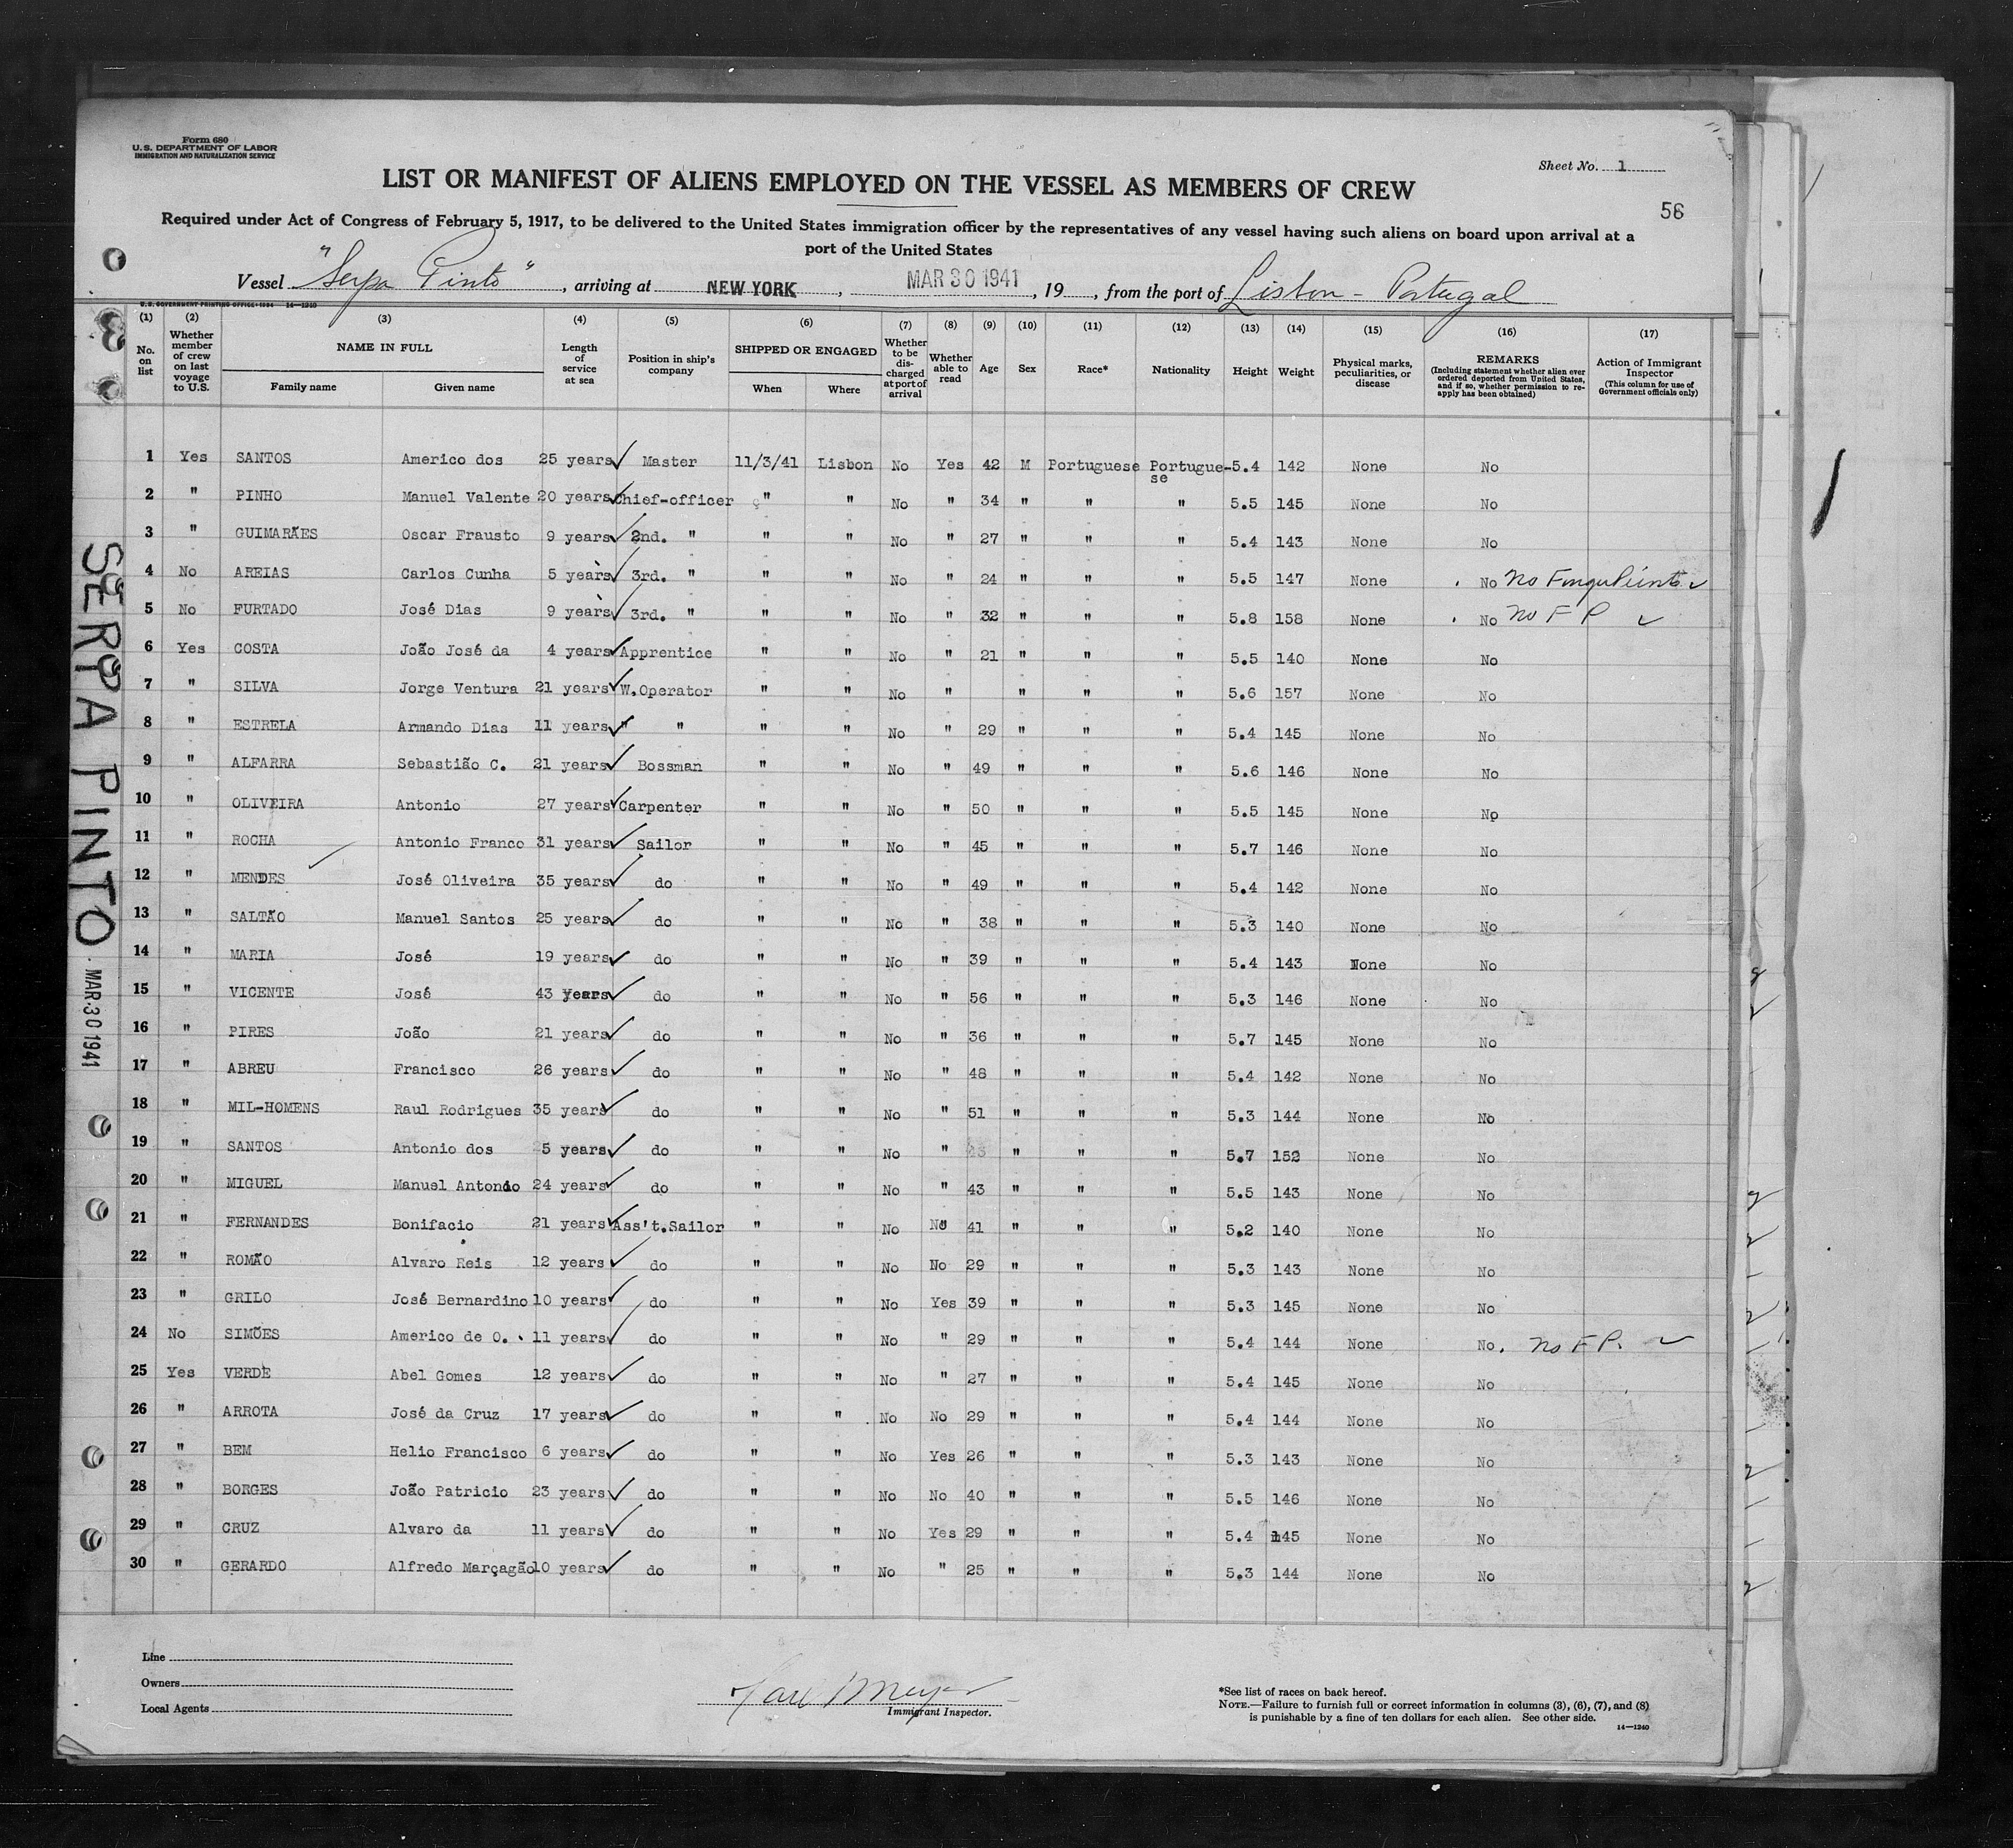 Form 680
U.S. DEPARTMENT OF LABOR
IMMIGRATION AND NATURALIZATION SERVICE
Sheet No. 1
LIST OR MANIFEST OF ALIENS EMPLOYED ON THE VESSEL AS MEMBERS OF CREW
56
Required under Act of Congress of February 5, 1917, to be delivered to the United States immigration officer by the representatives of any vessel having such aliens on board upon arrival at a
port of the United States
Vessel "Serpa Pinto", arriving at NEW YORK, MAR 30 1941, 19, from the port of Lisbon - Portugal
U.S. GOVERNMENT PRINTING OFFICE: 1934 14—1240
(1) (2) (3) (4) (5) (6) (7) (8) (9) (10) (11) (12) (13) (14) (15) (16) (17)
No. on list
Whether member of crew on last voyage to U.S.
NAME IN FULL
Family name Given name
Length of service at sea
Position in ship's company
SHIPPED OR ENGAGED
When Where
Whether to be discharged at port of arrival
Whether able to read
Age Sex Race* Nationality Height Weight
Physical marks, peculiarities, or disease
REMARKS
(Including statement whether alien ever ordered deported from United States, and if so, whether permission to reapply has been obtained)
Action of Immigrant Inspector
(This column for use of Government officials only)
1 Yes SANTOS Americo dos 25 years Master 11/3/41 Lisbon No Yes 42 M Portuguese Portugue-se 5.4 142 None No
2 " PINHO Manuel Valente 20 years Chief-officer " " No " 34 " " " 5.5 145 None No
3 " GUIMARÃES Oscar Frausto 9 years 2nd. " " " No " 27 " " " 5.4 143 None No
4 No AREIAS Carlos Cunha 5 years 3rd. " " " No " 24 " " " 5.5 147 None No No FingerPrints
5 No FURTADO José Dias 9 years 3rd. " " " No " 32 " " " 5.8 158 None No no F P
6 Yes COSTA João José da 4 years Apprentice " " No " 21 " " " 5.5 140 None No
7 " SILVA Jorge Ventura 21 years W.Operator " " No " " " " 5.6 157 None No
8 " ESTRELA Armando Dias 11 years " " " " No " 29 " " " 5.4 145 None No
9 " ALFARRA Sebastião C. 21 years Bossman " " No " 49 " " " 5.6 146 None No
10 " OLIVEIRA Antonio 27 years Carpenter " " No " 50 " " " 5.5 145 None No
11 " ROCHA Antonio Franco 31 years Sailor " " No " 45 " " " 5.7 146 None No
12 " MENDES José Oliveira 35 years do " " No " 49 " " " 5.4 142 None No
13 " SALTÃO Manuel Santos 25 years do " " No " 38 " " " 5.3 140 None No
14 " MARIA José 19 years do " " No " 39 " " " 5.4 143 None No
15 " VICENTE José 43 years do " " No " 56 " " " 5.3 146 None No
16 " PIRES João 21 years do " " No " 36 " " " 5.7 145 None No
17 " ABREU Francisco 26 years do " " No " 48 " " " 5.4 142 None No
18 " MIL-HOMENS Raul Rodrigues 35 years do " " No " 51 " " " 5.3 144 None No
19 " SANTOS Antonio dos 5 years do " " No " " " " 5.7 152 None No
20 " MIGUEL Manuel Antonio 24 years do " " No " 43 " " " 5.5 143 None No
21 " FERNANDES Bonifacio 21 years Ass't.Sailor " " No No 41 " " " 5.2 140 None No
22 " ROMÃO Alvaro Reis 12 years do " " No No 29 " " " 5.3 143 None No
23 " GRILO José Bernardino 10 years do " " No Yes 39 " " " 5.3 145 None No
24 No SIMÕES Americo de O. 11 years do " " No " 29 " " " 5.4 144 None No. no F P.
25 Yes VERDE Abel Gomes 12 years do " " No " 27 " " " 5.4 145 None No
26 " ARROTA José da Cruz 17 years do " " No No 29 " " " 5.4 144 None No
27 " BEM Helio Francisco 6 years do " " No Yes 26 " " " 5.3 143 None No
28 " BORGES João Patricio 23 years do " " No No 40 " " " 5.5 146 None No
29 " CRUZ Alvaro da 11 years do " " No Yes 29 " " " 5.4 145 None No
30 " GERARDO Alfredo Marçagão 10 years do " " No " 25 " " " 5.3 144 None No
SERPA PINTO
MAR 30 1941
Line
Owners
Local Agents
Immigrant Inspector.
*See list of races on back hereof.
NOTE.—Failure to furnish full or correct information in columns (3), (6), (7), and (8)
is punishable by a fine of ten dollars for each alien. See other side.
14—1240